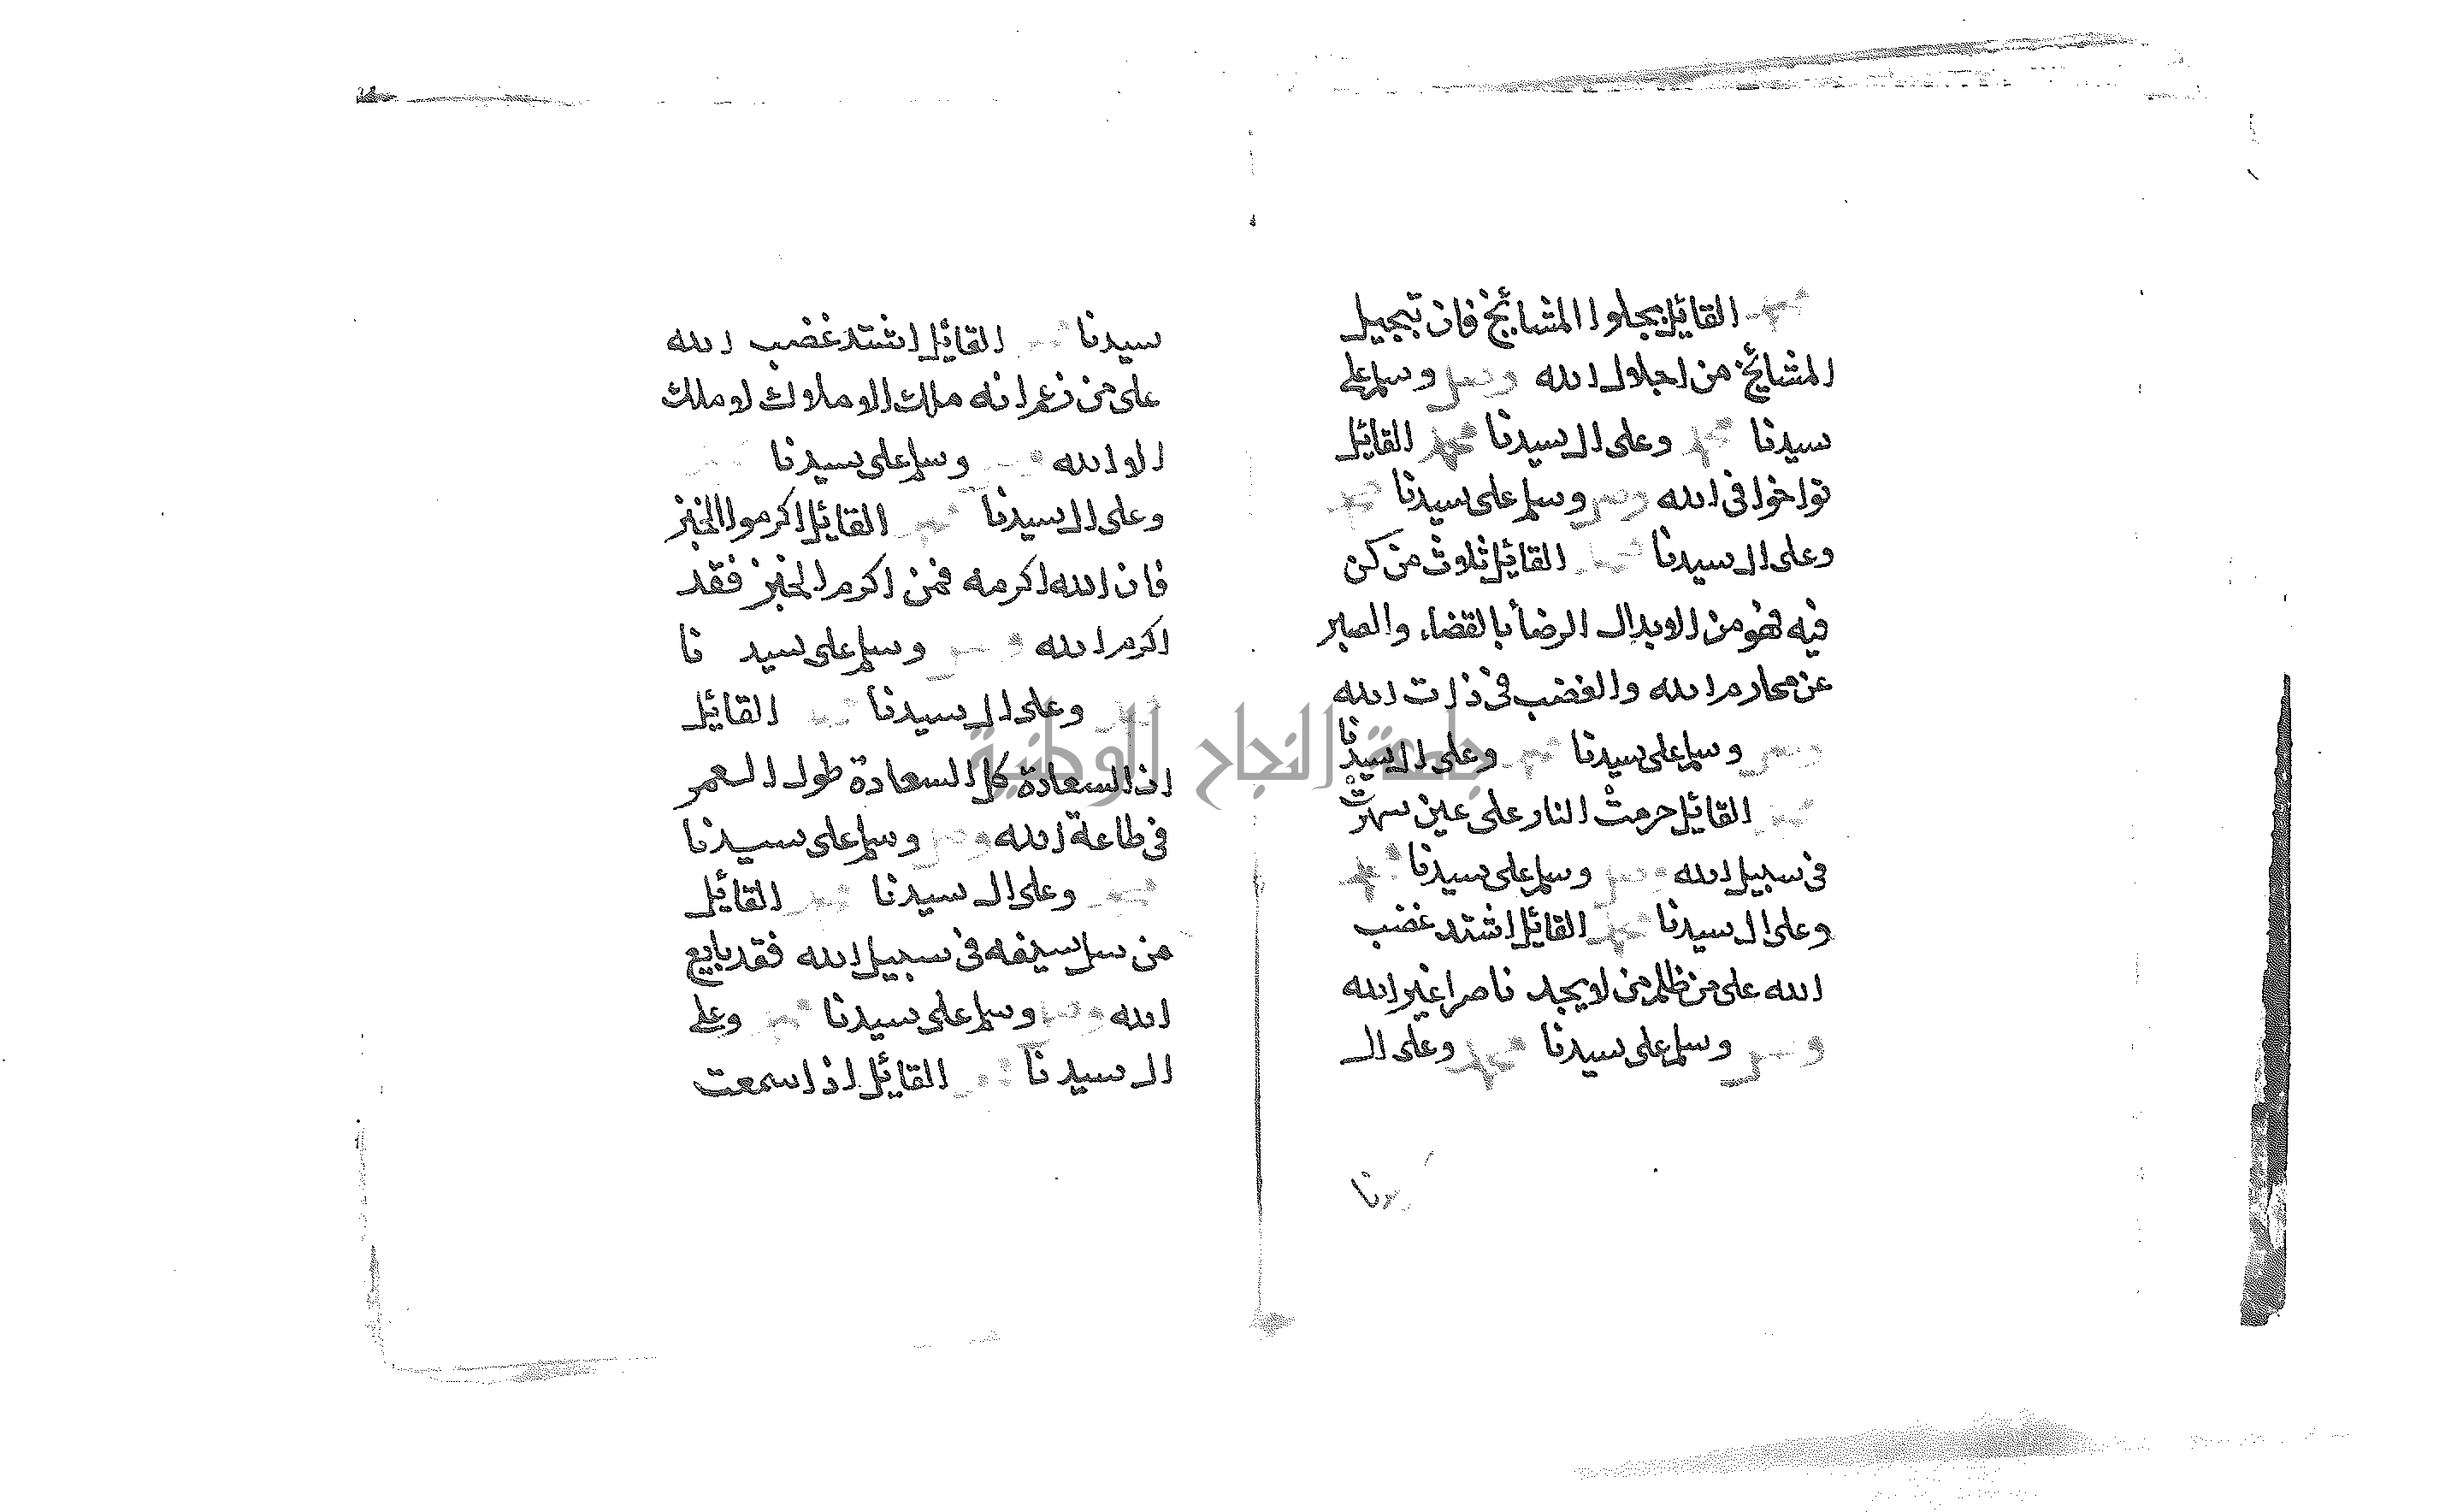 محمد القائل بجلوا المشائخ فان تبجيل
المشائخ من اجلال الله وصل وسلم على
سيدنا محمد وعلى ال سيدنا محمد القائل
تواخوا فى الله وصل وسلم على سيدنا محمد
وعلى ال سيدنا محمد القائل ثلاث من كن
فيه فهو من الابدال الرضأ بالقضاء والصبر
عن محارم الله والغضب فى ذات الله
وصل وسلم على سيدنا محمد وعلى ال سيدنا
محمد القائل حرمت النار على عين سهرت
فى سبيل الله وصل وسلم على سيدنا محمد
وعلى ال سيدنا محمد القائل اشتد غضب
الله على من ظلم من لا يجد ناصرا غير الله
وصل وسلم على سيدنا محمد وعلى ال
سيدنا
سيدنا محمد القائل اشتد غضب الله
على من زعم انه ملك الاملاك لا ملك
الا الله وصل وسلم على سيدنا
وعلى ال سيدنا محمد القائل اكرموا الخبز
فان الله اكرمه فمن اكرم الخبز فقد
اكرم الله وصل وسلم على سيدنا
محمد وعلى ال سيدنا محمد القائل
ان السعادة كل السعادة طول العمر
فى طاعة الله وصل وسلم على سيدنا
محمد وعلى ال سيدنا محمد القائل
من سل سيفه فى سبيل الله فقد بايع
الله وصل وسلم على سيدنا محمد وعلى
ال سيدنا محمد القائل اذا سمعت
جامعة النجاح الوطنية